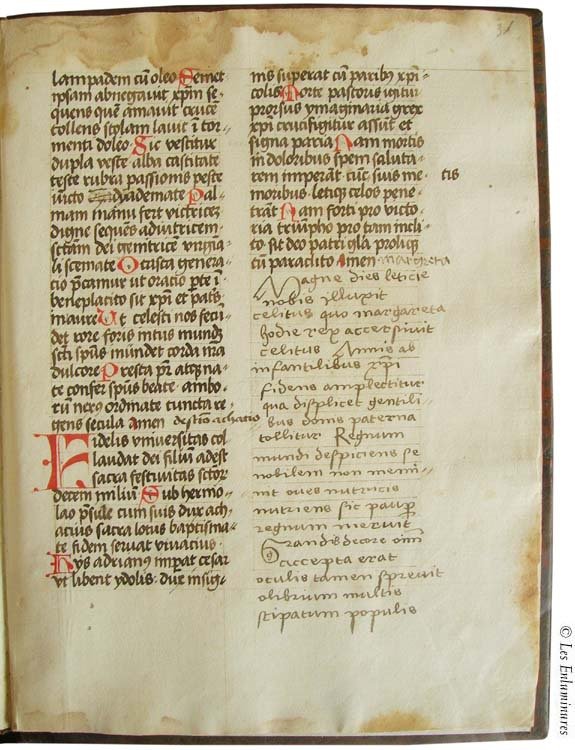 31
lampadem cū oleo Semet
ipsam abnegauit xpm̄ se-
quens quē amauit crucē
tollens stolam lauit ī tor-
menti doleo Sic vestitur
dupla veste alba castitate
teste rubra passionis peste
victo dyademate Pal-
mam manu fert victricez
digne sequēs adiutricem
sctām dei genitricē virgīa-
li scemate O casta genera-
cio p̄camur ut oracio p̄ te ī
beneplacito sit xpī et pat͛s
maure Ut celesti nos fecū-
det rore foris intus mundz
sct͛i spūs mundet corda ma
dulcore Presta p̄r atqz na-
te confer spūs beate ambo-
rū nexus ordinate cuncta re-
gens secula amen de scto achacio
Fidelis vniuersitas col
laudat dei filiū adest
sacra festiuitas sctōr
decem miliū Sub hermo-
lao p̄sule cum suis dux ach-
acius sacra lotus baptisma-
te fidem seruat viuacius
Hys adrianus imperat cesar
vt libent ydolis due insig-
nis superat cū paribus xpī-
colis Morte pastoris igitur
prorsus ymaginaria grex
xpī crucifigitur assūt et
signa paria Nam mortis
in doloribus spem saluta-
rem imperāt cūc suis me-tis
moribus letiqz celos pene-
trāt Nam forti pro victo-
ria triūmpho pro tam incli-
to sit deo patri gl̄a proliqz
cū paraclito Amen margreta
Magne dies leticie
nobis illuxit
celitus quo margareta
hodie rex accersiuit
celitus Annis ab
infantilibus xpī
fidens amplectitur
qua displicet gentili-
bus domo paterna
tollitur Regnum
mundi despiciens se
nobilem non memi-
nit oues nutricis
nutriens sic paup̄
regnum meruit
Grandis decore om̄i
accepta erat
oculis tamen spreuit
olibrium multis
stipatum populis
© Les Enluminures